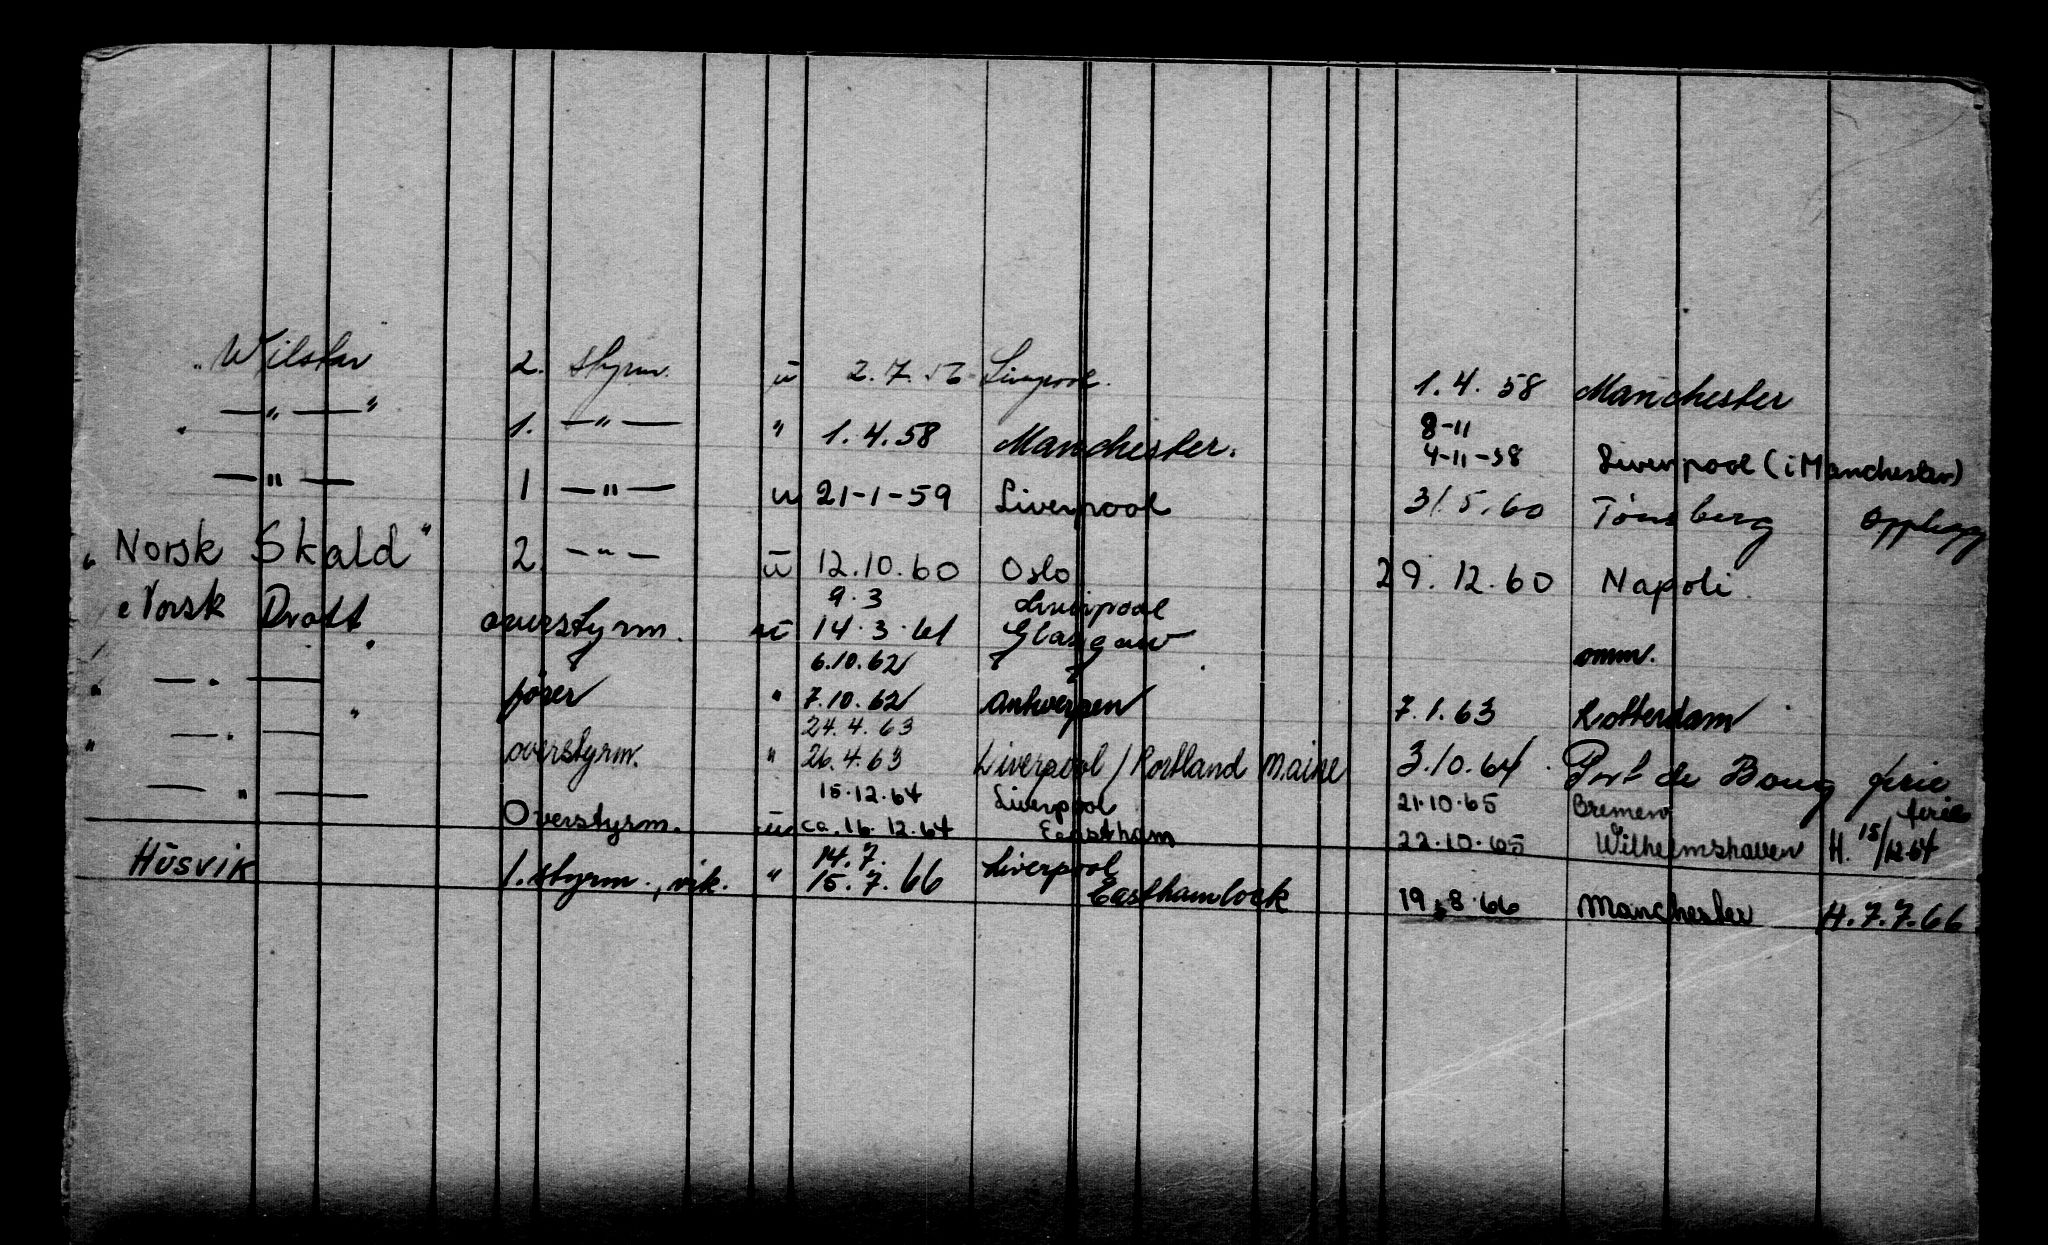 "Wilstar" 2. styrm. u 2.7.56 Liverpool. 1.4.58 Manchester
" —"—" 1. —"— " 1.4.58 Manchester. 8-11 4-11-58 Liverpool (i Manchester)
—"— 1 —"— u 21-1-59 Liverpool 31.5.60 Tønsberg Opplegg
"Norsk Skald" 2. —"— u 12.10.60 Oslo 29.12.60 Napoli.
9.3 Liverpool
"Norsk Drott" overstyrm. u 14.3.61 Glasgow omm.
6.10.62
" —"— " fører " 7.10.62 Antwerpen 7.1.63 Rotterdam
24.4.63
" —"— overstyrm. " 26.4.63 Liverpool / Portland Maine 3.10.64 Port de Bouy ferie
15.12.64 Liverpool 21.10.65 Bremen ferie
—"— Overstyrm. u ca. 16.12.64 Eastham 22.10.65 Wilhelmshaven H. 15/12.64
14.7. Liverpool
Husvik 1. styrm., vik. " 15.7.66 Easthamlock 19.8.66 Manchester H. 7.7.66